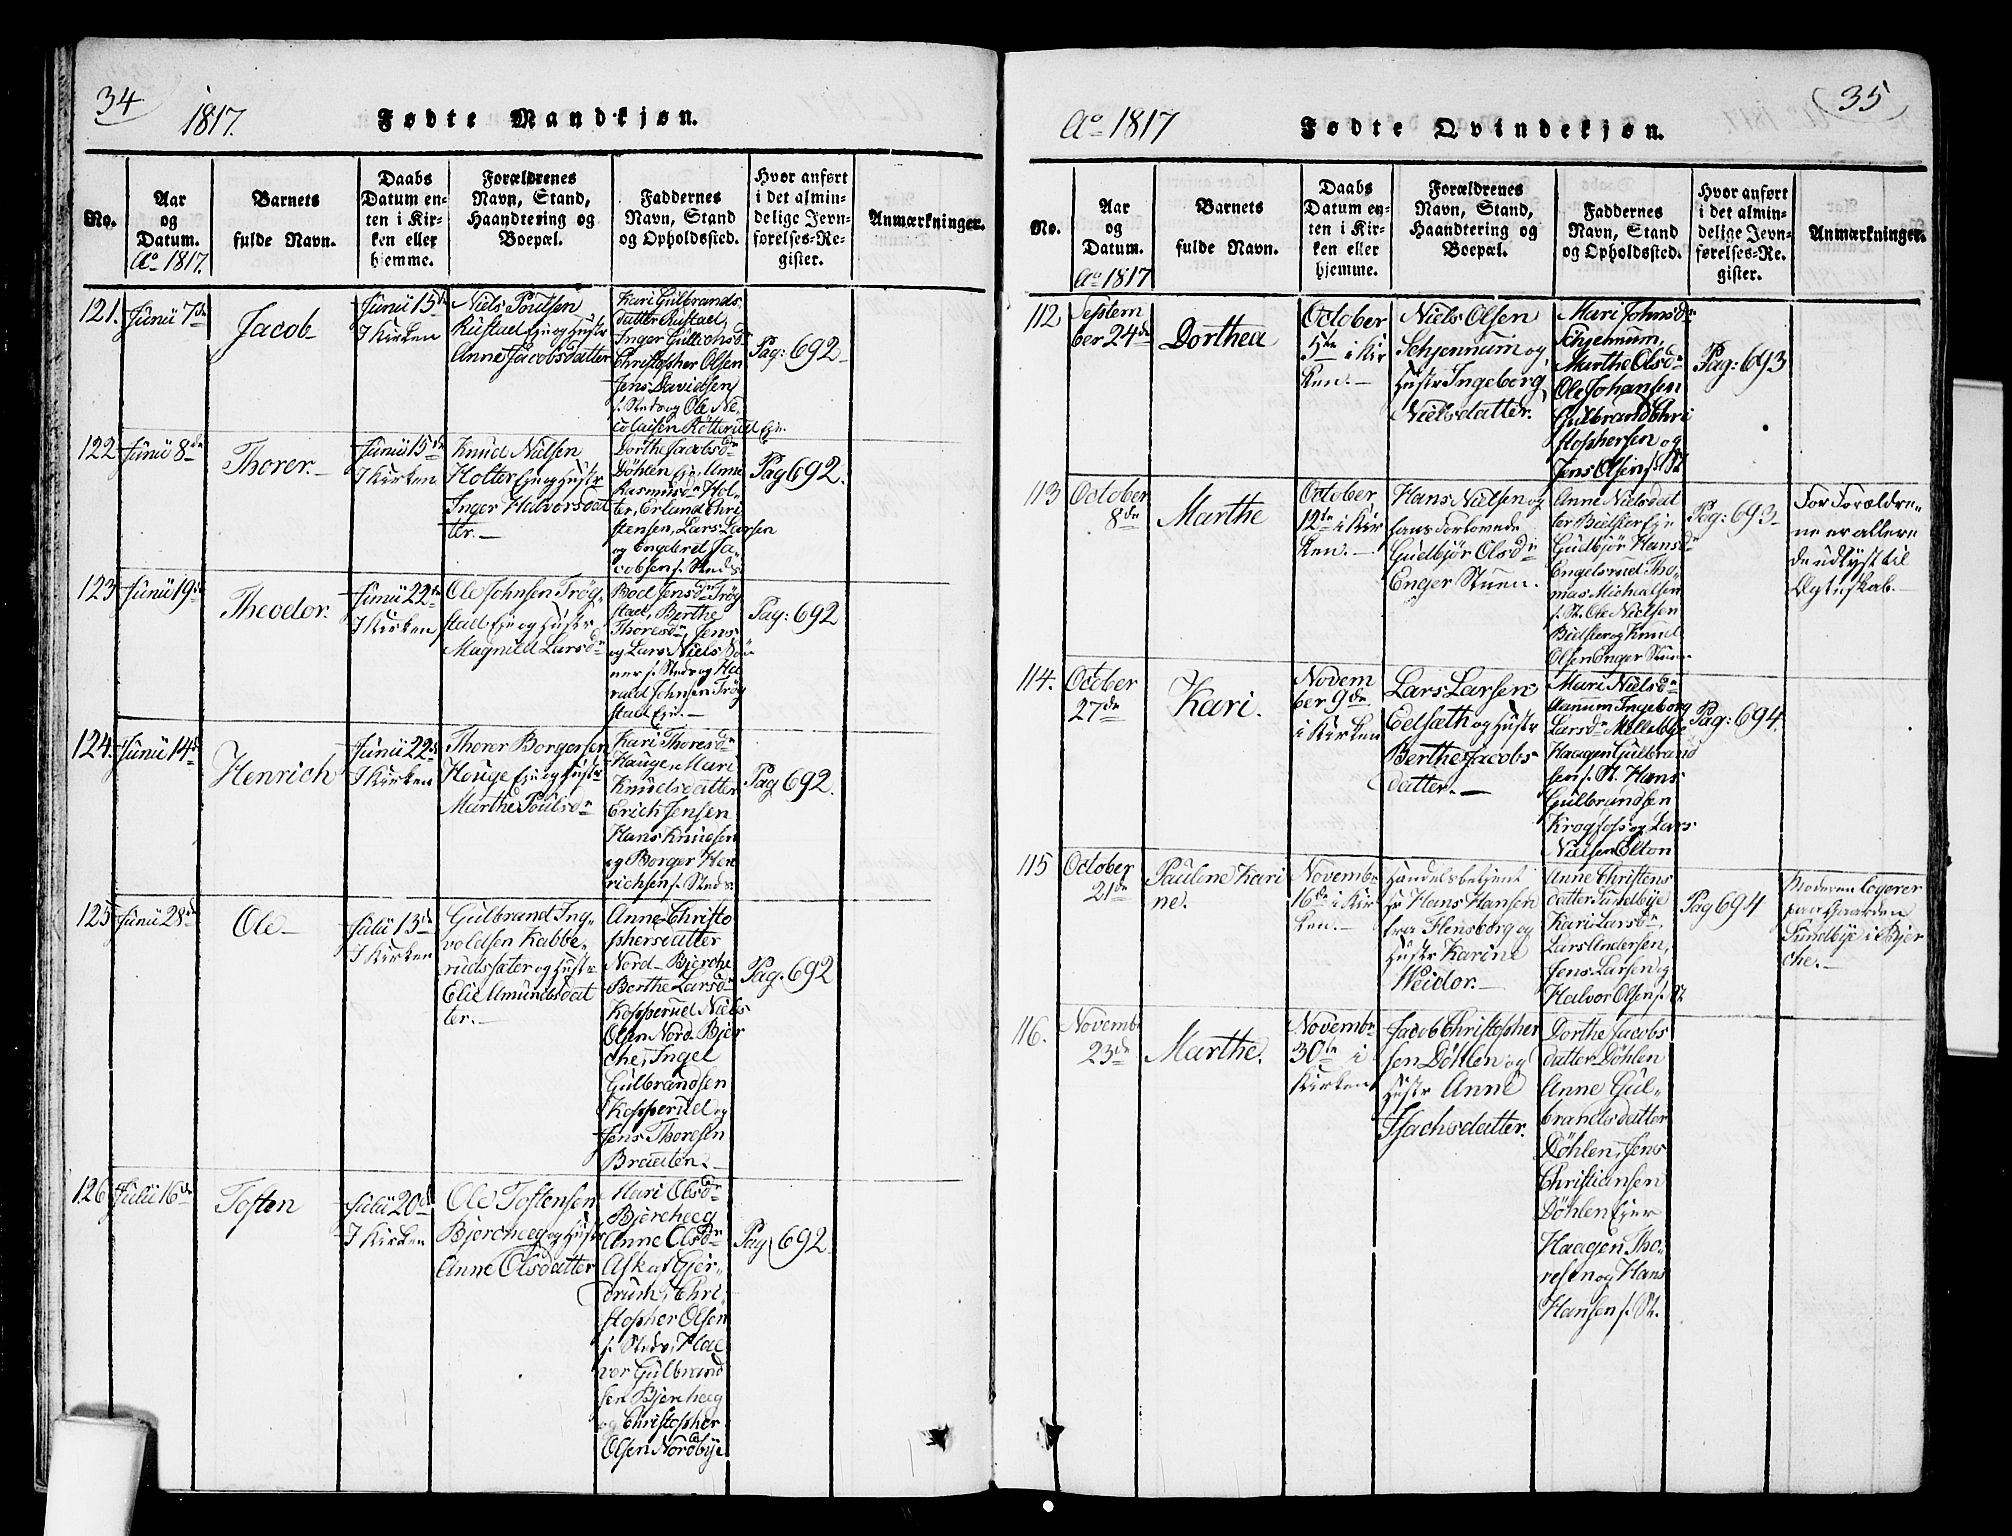 34
1817.
Fødte Mandkjøn.
No.
Aar
og
Datum.
Ao 1817.
Barnets
fulde Navn.
Daabs
Datum en-
ten i Kir-
ken eller
hjemme.
Forældrenes
Navn, Stand,
Haandtering og
Boepæl.
Faddernes
Navn, Stand
og Opholdssted.
Hvor anført
i det almin-
delige Jevn-
førelses-Re-
gister.
Anmærkninger.
121.
Junii 7de
Jacob
Junii 15de
I Kirken
Niels Poulsen
Rustad Eje og Hustr
Anne Jacobsdatter
Kari Gulbrands
datter Rustad,
Inger Gullichsdr
Christopher Olsen
Jens Davidsen
f. Sted og Ole Ni-
colaisen Rotterud Eje.
Pag: 692
122
Junii 8de
Thorer.
Junii 15de
I Kirken
Knud Nielsen
Holter Eje og Hustr
Inger Halvorsdat
ter.
Dorthe Jacobsdr
Döhlen Eje, Anne
Rasmusdr Hol-
ter, Erland Chri
stensen, Lars Larsen
og Engebret Ja-
cobsen f. Steds
Pag 692.
123
Junii 19de
Theodor.
Junii 22de
I Kirken
Ole Johnsen Trög-
stad Eje og Hustr
Magnild Larsdr
Boel Jensdr Trög
stad, Berthe
Thoresdr, Jens
og Lars Niels Sön
ner f. Sted og Ha
rald Johnsen Trög
stad Eje.
Pag: 692
124.
Junii 14de
Henrich
Junii 22de
I Kirken
Thorer Borgersen
Houge Eje og Hustr
Marthe Poulsdr
Kari Thoresdr
Hauge, Mari
Knudsdatter
Erich Jensen
Hans Knudsen
og Borger Hen
richsen f. Steds
Pag 692.
125
Junii 28de
Ole
Julii 13de
I Kirken
Gulbrand Ing-
voldsen Kabbe-
rudsæter og Hustr
Elie Amundsdat
ter.
Anne Christo
phersdatter
Nord-Bjerche
Berthe Larsdr
Kopperud Niels
Olsen Nord-Bjer
che, Ingel
Gulbrandsen
Kopperud og
Jens Thoresen
Braaten.
Pag. 692
126
Julii 16de
Tosten
Julii 20de
I Kirken
Ole Tostensen
Bjercheeg og Hustr
Anne Olsdatter
Mari Olsdr
Bjercheeg
Anne Olsdr
Ask af Gjer-
drum, Chri
stopher Olsen
f. Sted, Hal
vor Gulbrand
sen Bjercheeg
og Christopher
Olsen Nordbye
Pag 692
35
Ao 1817
Fødte Qvindekjøn.
No.
Aar
og
Datum.
Ao 1817
Barnets
fulde Navn.
Daabs
Datum en-
ten i Kir-
ken eller
hjemme.
Forældrenes
Navn, Stand,
Haandtering og
Boepæl.
Faddernes
Navn, Stand
og Opholdssted.
Hvor anført
i det almin-
delige Jevn-
førelses-Re-
gister.
Anmærkninger.
112
Septem
ber 24de
Dorthea
October
5te i Kir
ken.
Niels Olsen
Schjennum og
Hustr Ingeborg
Nielsdatter.
Mari Johnsdr
Schjennum,
Marthe Olsdr
Ole Johansen
Gulbrand Chri
stophersen og
Jens Olsen f. St.
Pag: 693
113
October
8de
Marthe
October
12te i Kir
ken.
Hans Nielsen og
hans Forlovede
Gudbjör Olsdr
Enger Stuen.
Anne Nielsdat
ter Bielster Eje
Gudbjör Hansdr
Engelsrud Tho-
mas Michealsen
f. St. Ole Nielsen
Bielster og Knud
Olsen Enger Stuen
Pag: 693
For Forældre-
ne er allere
de udlyst til
Ægteskab.
114.
October
27de
Kari.
Novem
ber 9de
i Kirken
Lars Larsen
Eelsæth og Hustr
Berthe Jacobs
datter.
Mari Nielsdr
Aanum Ingeborg
Larsdr Mellebye
Haagen Gulbrand
sen f. St. Hans
Gulbrandsen
Krogfoss og Lars
Nielsen Elton
Pag: 694.
115
October
21de
Paulene Kari
ne.
Novembr
16de i Kir
ken.
Handelsbetjent
Hr Hans Hansen
fra Flensborg og
Hustr Karine
Weidor.
Anne Christens
datter Sundbye
Kari Larsdr,
Lars Andersen,
Jens Larsen og
Halvor Olsen f. St
Pag 694
Moderen logerer
paa Gaarden
Sundbye i Bjer
che.
116.
Novembr
23de
Marthe.
Novembr
30te i
Kirken
Jacob Christopher
sen Döhlen og
Hustr Anne
Isachsdatter.
Dorthe Jacobs
datter Döhlen
Anne Gul-
brandsdatter
Döhlen, Jens
Christiansen
Döhlen Ejer
Haagen Tho-
resen og Hans
Hansen f. St.